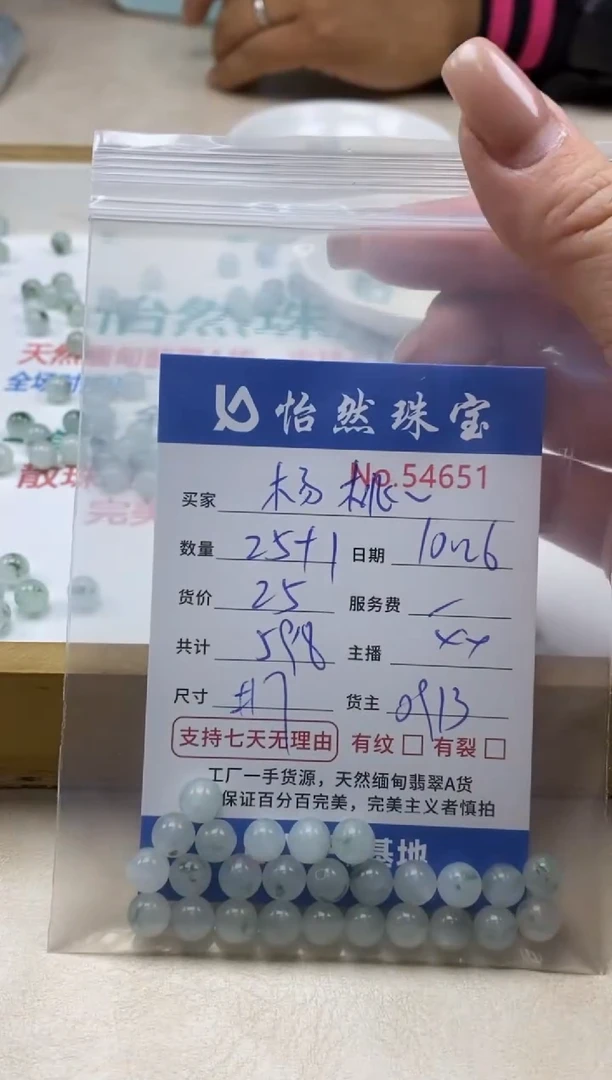 怡然珠宝
No.54651
买家 杨桃~
数量 25+1 日期 10n26
货价 25 服务费 /
共计 598 主播
尺寸 #7 货主 0913
支持七天无理由 有纹 □ 有裂 □
工厂一手货源，天然缅甸翡翠A货
保证百分百完美，完美主义者慎拍
基地
怡然珠
天然
全场
散珠
完美